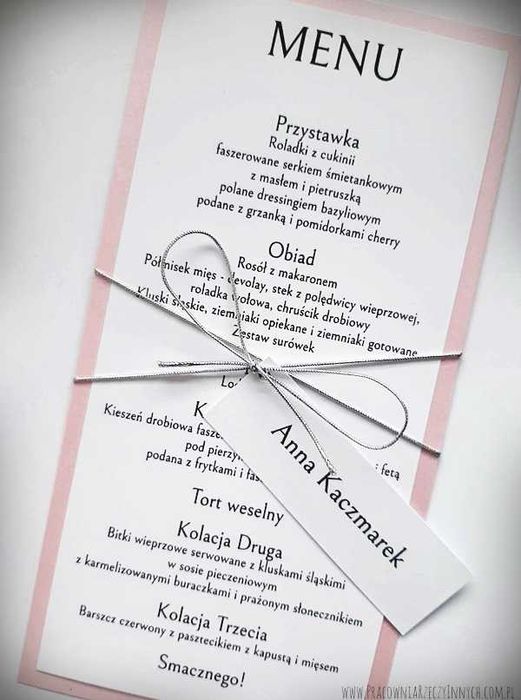 MENU
Przystawka
Roladki z cukinii
faszerowane serkiem śmietankowym
z masłem i pietruszką
polane dressingiem bazyliowym
podane z grzanką i pomidorkami cherry
Obiad
Rosół z makaronem
Półmisek mięs - devolay, stek z polędwicy wieprzowej,
roladka wołowa, chruścik drobiowy
Kluski śląskie, ziemniaki opiekane i ziemniaki gotowane
Zestaw surówek
Kieszeń drobiowa fetą
pod
podana z frytkami i
Anna Kaczmarek
Tort weselny
Kolacja Druga
Bitki wieprzowe serwowane z kluskami śląskimi
w sosie pieczeniowym
z karmelizowanymi buraczkami i prażonym słonecznikiem
Kolacja Trzecia
Barszcz czerwony z pasztecikiem z kapustą i mięsem
Smacznego!
www.PracowniaRzeczyInnych.com.pl